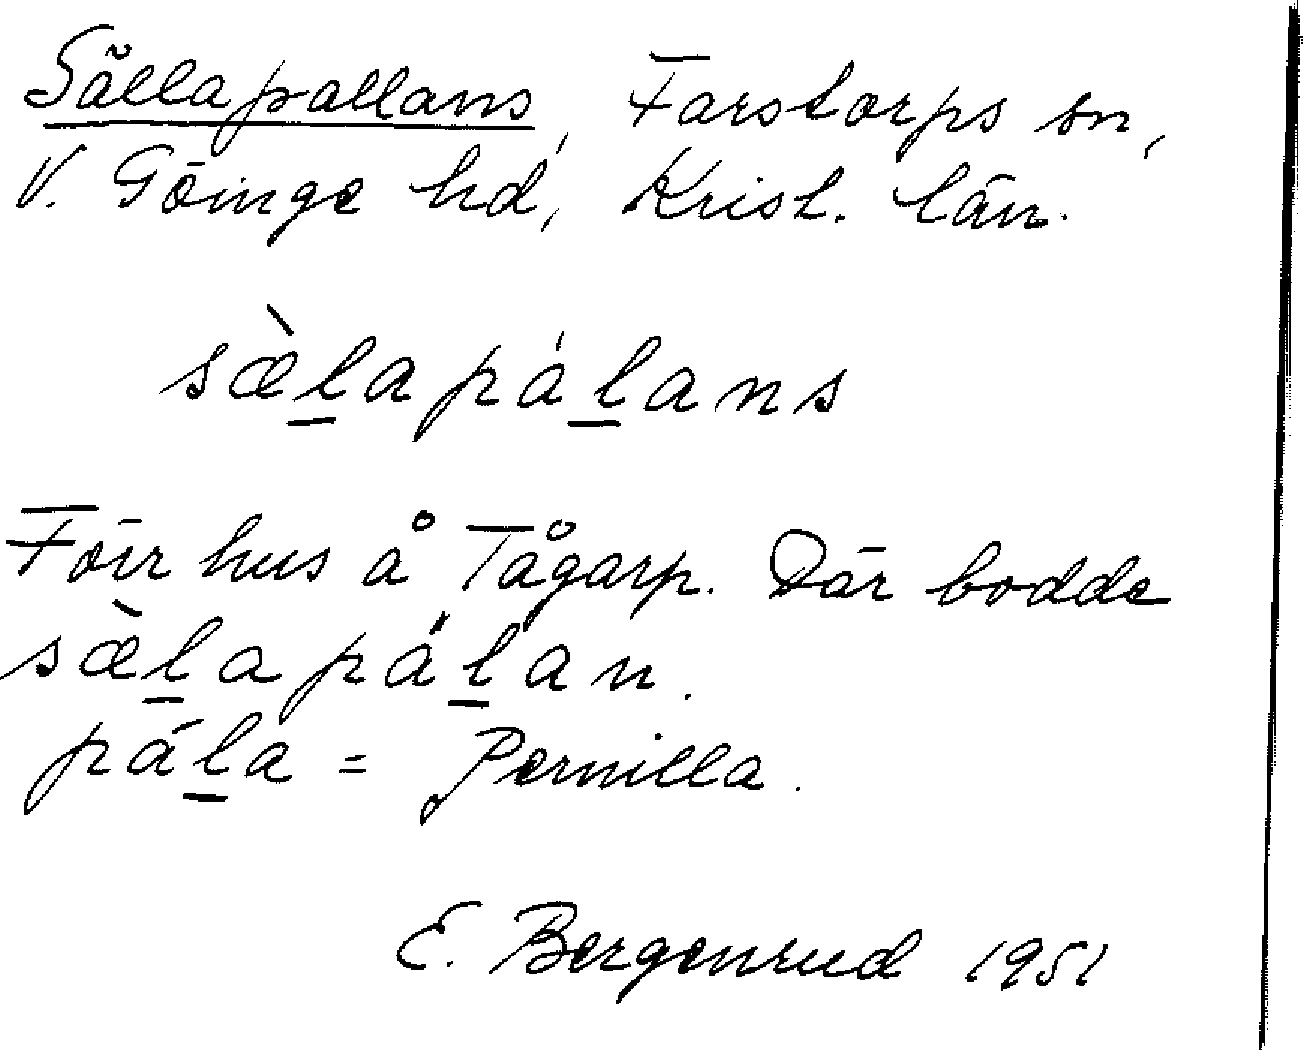 Sällapallans, Farstorps sn,
V. Göinge hd, Krist. län.
sæ̀l̲apál̲ans
Förr hus å Tågarp. Där bodde
sæ̀l̲apa̋l̲an.
pál̲a = Pernilla.
E. Bergenrud 1951